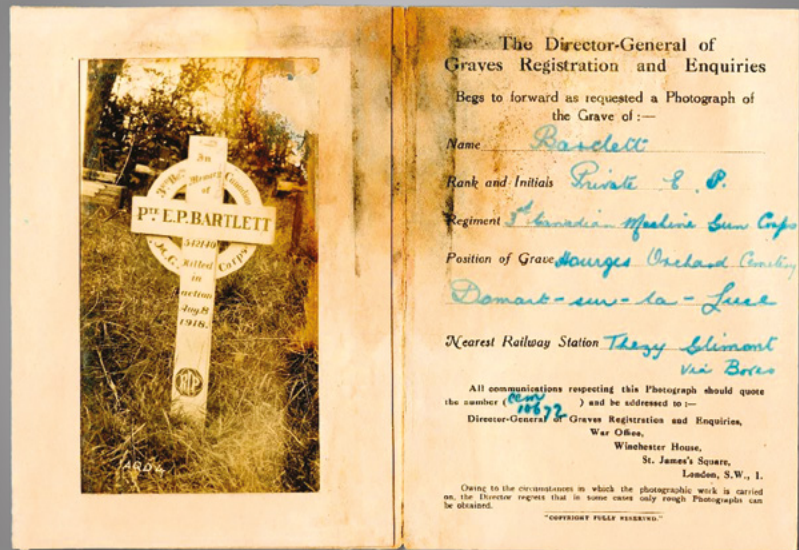 In
Memory
of
3rd Bn. Canadian
PTE E.P. BARTLETT
542140
M.G. Corps
Killed
in
action
Aug 8
1918.
RIP
The Director-General of
Graves Registration and Enquiries
Begs to forward as requested a Photograph of
the Grave of :—
Name Bartlett
Rank and Initials Private E. P.
Regiment 3rd Canadian Machine Gun Corps
Position of Grave Hourges Orchard Cemetery
Domart-sur-la-Luce
Nearest Railway Station Thezy Glimont
via Boves
All communications respecting this Photograph should quote
the number (Can 10672) and be addressed to :—
Director-General of Graves Registration and Enquiries,
War Office,
Winchester House,
St. James's Square,
London, S.W., 1.
Owing to the circumstances in which the photographic work is carried
on, the Director regrets that in some cases only rough Photographs can
be obtained.
"COPYRIGHT FULLY RESERVED."